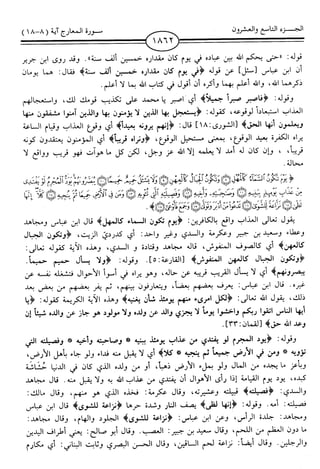 الجـــزء التاسع والعشرون
١٨٦٢
سورة المعارج آية (٨-١٨)
قوله: «حتى يحكم الله بين عباده في يوم كان مقداره خمسين ألف سنة». وقد روى ابن جرير
أن ابن عباس [سئل] عن قوله ﴿في يوم كان مقداره خمسين ألف سنة﴾ فقال: هما يومان
ذكرهما الله، والله أعلم بهما وأكره أن أقول في كتاب الله بما لا أعلم.
وقوله: ﴿فاصبر صبراً جميلاً﴾ أي اصبر يا محمد على تكذيب قومك لك، واستعجالهم
العذاب استبعاداً لوقوعه، كقوله: ﴿يستعجل بها الذين لا يؤمنون بها والذين آمنوا مشفقون منها
ويعلمون أنها الحق﴾ [الشورى: ١٨] قال: ﴿إنهم يرونه بعيداً﴾ أي وقوع العذاب وقيام الساعة
يراه الكفرة بعيد الوقوع، بمعنى مستحيل الوقوع، ﴿ونراه قريباً﴾ أي المؤمنون يعتقدون كونه
قريباً، وإن كان له أمد لا يعلمه إلا الله عز وجل، لكن كل ما هو آت فهو قريب وواقع لا
محالة.
يقول تعالى العذاب واقع بالكافرين: ﴿يوم تكون السماء كالمهل﴾ قال ابن عباس ومجاهد
وعطاء وسعيد بن جبير وعكرمة والسدي وغير واحد: أي كدردي الزيت، ﴿وتكون الجبال
كالعهن﴾ أي كالصوف المنفوش، قاله مجاهد وقتادة و السدي، وهذه الآية كقوله تعالى:
﴿وتكون الجبال كالعهن المنفوش﴾ [القارعة: ٥]. وقوله: ﴿ولا يسأل حميم حميماً.
يبصرونهم﴾ أي لا يسأل القريب قريبه عن حاله، وهو يراه في أسوأ الأحوال فتشغله نفسه عن
غيره. قال ابن عباس: يعرف بعضهم بعضاً، ويتعارفون بينهم، ثم يفر بعضهم من بعض بعد
ذلك، يقول الله تعالى: ﴿لكل امرىء منهم يومئذ شأن يغنيه﴾ وهذه الآية الكريمة كقوله: ﴿يا
أيها الناس اتقوا ربكم واخشوا يوماً لا يجزي والد عن ولده ولا مولود هو جاز عن والده شيئاً إن
وعد الله حق﴾ [لقمان: ٣٣].
وقوله: ﴿يود المجرم لو يفتدي من عذاب يومئذ ببنيه * وصاحبته وأخيه * وفصيلته التي
تؤويه * ومن في الأرض جميعاً ثم ينجيه * كلا﴾ أي لا يقبل منه فداء ولو جاء بأهل الأرض،
وبأعز ما يجده من المال ولو بملء الأرض ذهباً، أو من ولده الذي كان في الدنيا حُشَاشَة
كبده، يود يوم القيامة إذا رأى الأهوال أن يفتدي من عذاب الله به ولا يقبل منه. قال مجاهد
والسدي: ﴿فصيلته﴾ قبيلته وعشيرته، وقال عكرمة: فخذه الذي هو منهم، وقال مالك:
فصيلته: أمه. وقوله: ﴿إنها لظى﴾ يصف النار وشدة حرها ﴿نزاعة للشوى﴾ قال ابن عباس
ومجاهد: جلدة الرأس، وعن ابن عباس: ﴿نزاعة للشوى﴾ الجلود والهام، وقال مجاهد:
ما دون العظم من اللحم، وقال سعيد بن جبير: العصب. وقال أبو صالح: يعني أطراف اليدين
والرجلين. وقال أيضاً: نزاعة لحم الساقين، وقال الحسن البصري وثابت البناني: أي مكارم